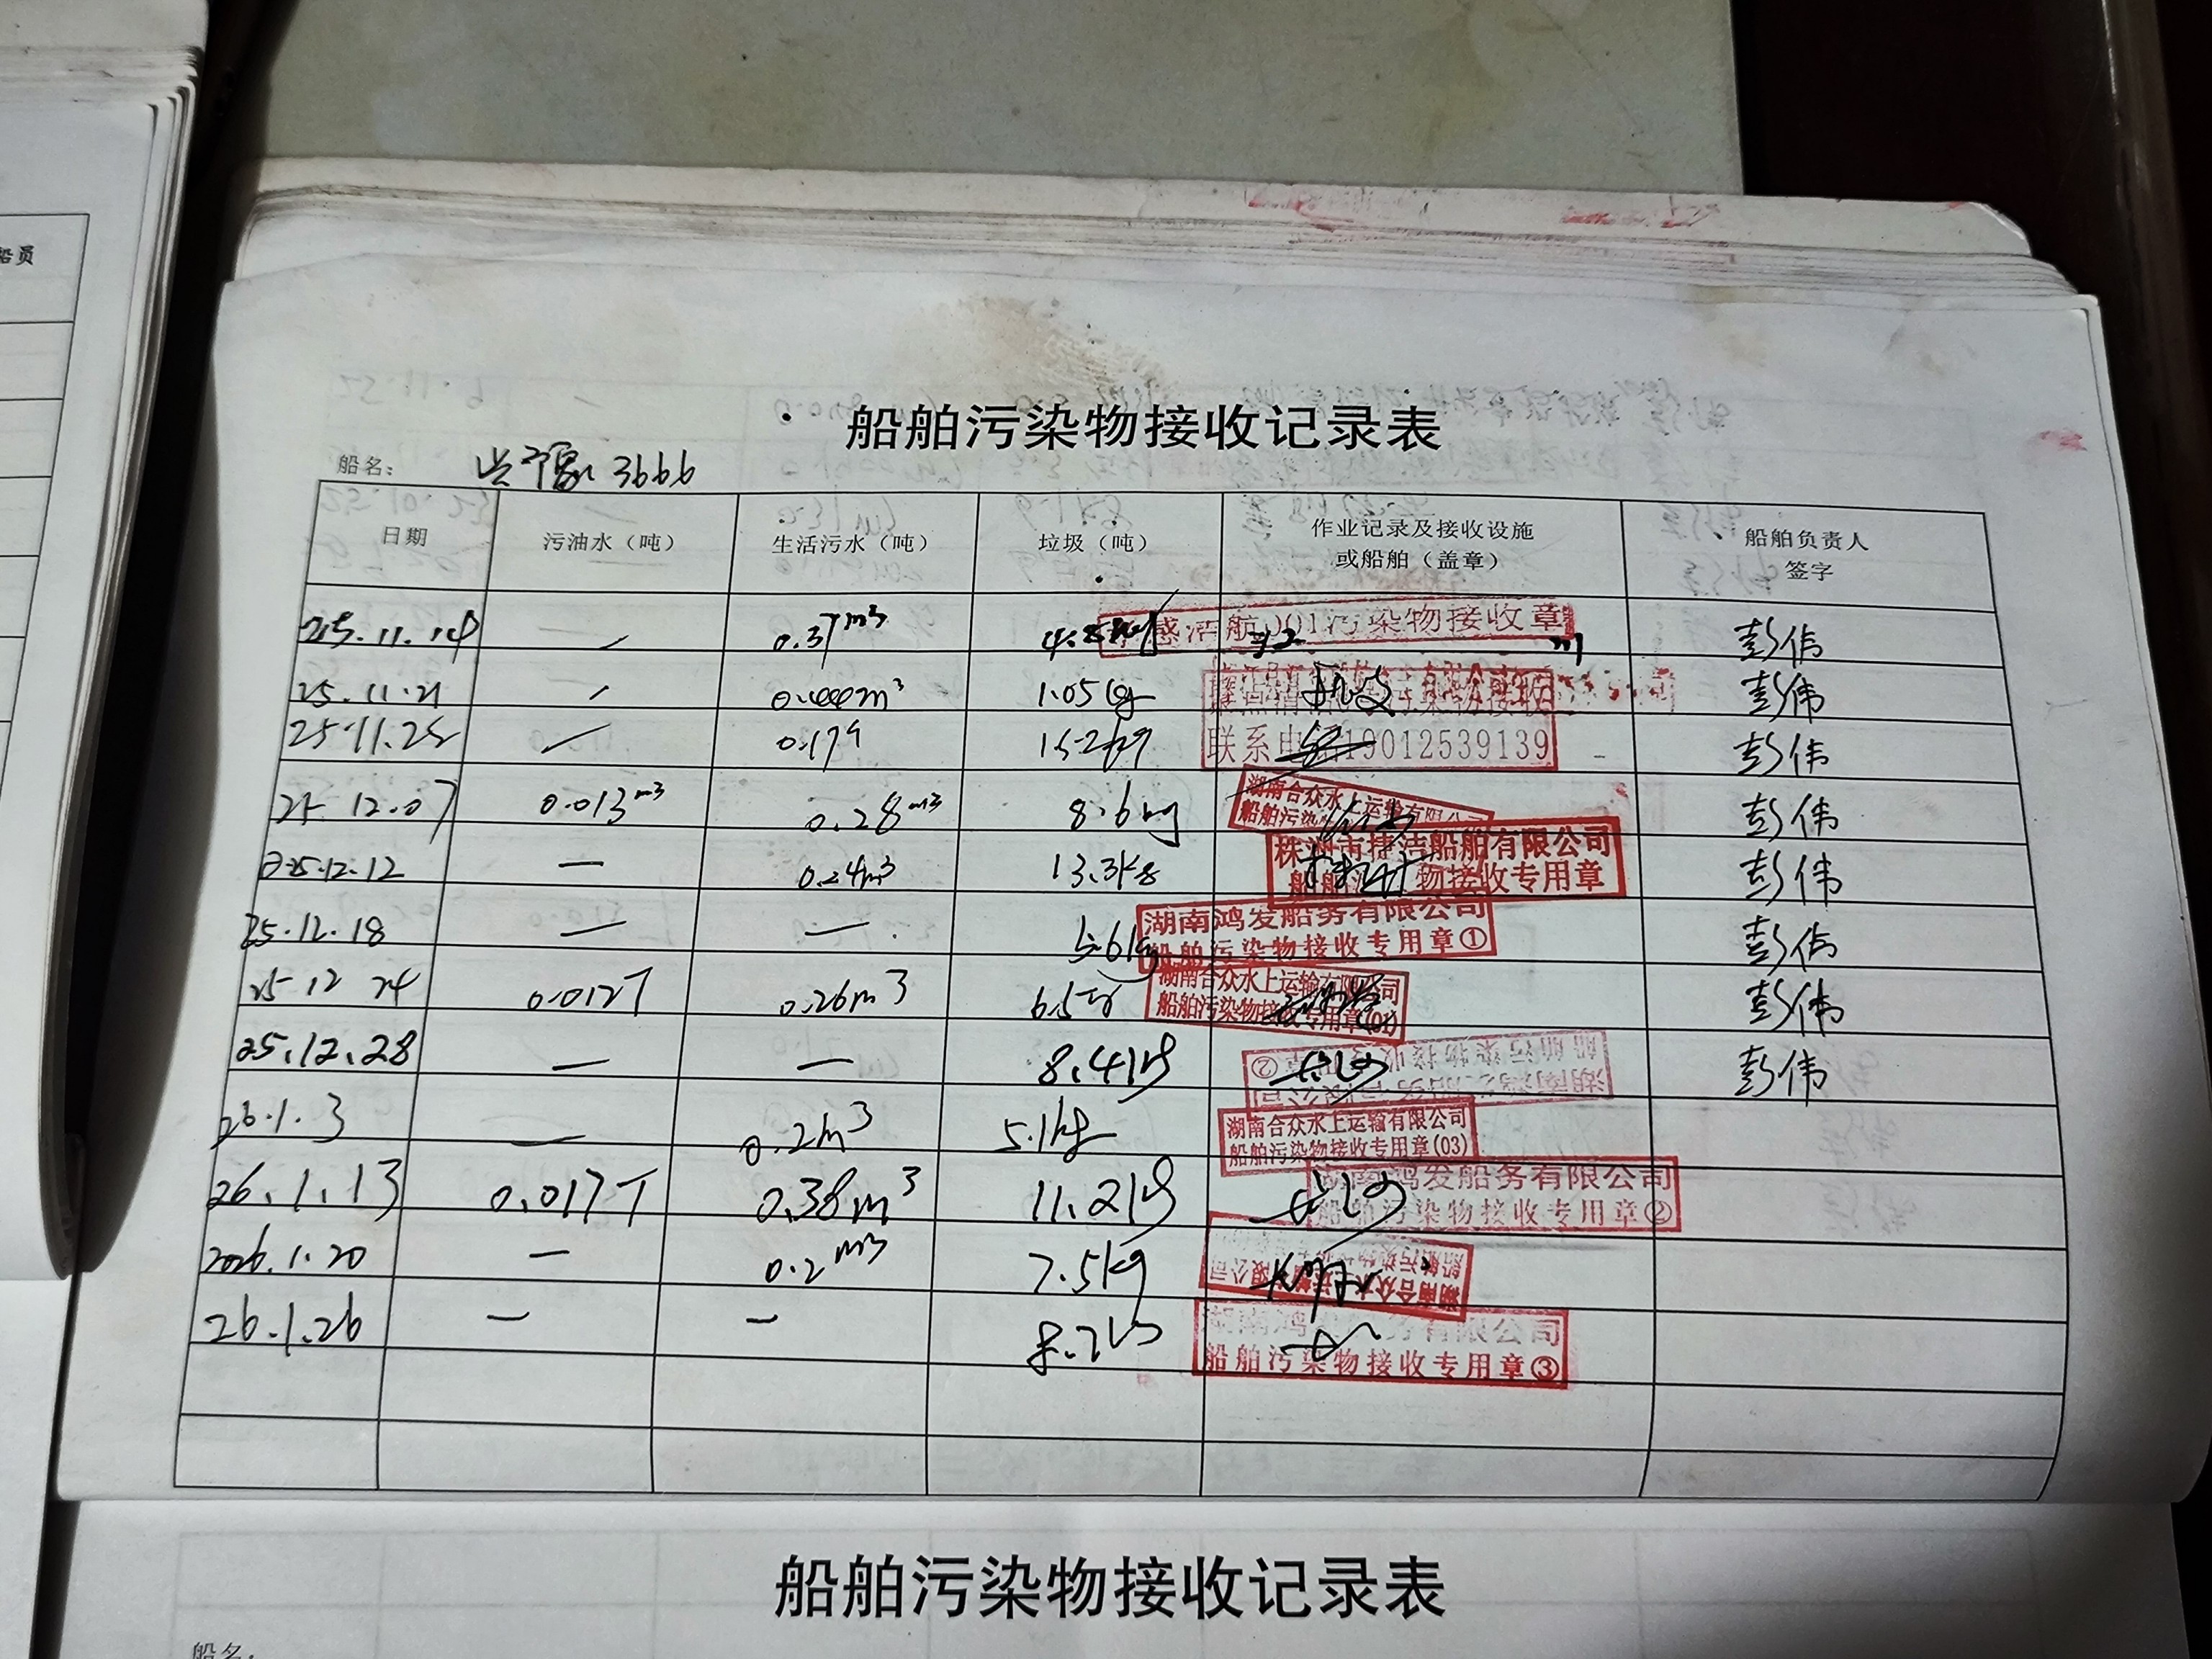 船员
船舶污染物接收记录表
船名： 3666
日期 污油水（吨） 生活污水（吨） 垃圾（吨） 作业记录及接收设施或船舶（盖章） 船舶负责人签字
25.11.14 / 0.37m³ 航001污染物接收章 彭伟
25.11.21 / m³ 1.05kg 污染物接收 彭伟
25.11.25 / 0.17 联系电 19012539139 彭伟
25.12.07 0.013m³ 0.28m³ 8.6kg 湖南合众水上运输有限公司 船舶污染 彭伟
25.12.12 — 0.24m³ 13.3kg 株洲市捷洁船舶有限公司 船舶污 物接收专用章 彭伟
25.12.18 — — 5.6kg 湖南鸿发船务有限公司 船舶污染物接收专用章① 彭伟
25.12.24 0.012T 0.26m³ 湖南合众水上运输有限公司 船舶污染物接收专用章(01) 彭伟
25.12.28 — — 8.4kg 湖南鸿发船务有限公司 船舶污染物接收专用章② 彭伟
26.1.3 — 0.2m³ 5.1kg 湖南合众水上运输有限公司 船舶污染物接收专用章(03)
26.1.13 0.017T 0.38m³ 11.2kg 湖南鸿发船务有限公司 船舶污染物接收专用章②
2026.1.20 — 0.2m³ 7.5kg 湖南合众 限公司 船舶污染物
26.1.26 — — 8.2kg 湖南鸿 务有限公司 船舶污染物接收专用章③
船舶污染物接收记录表
船名：